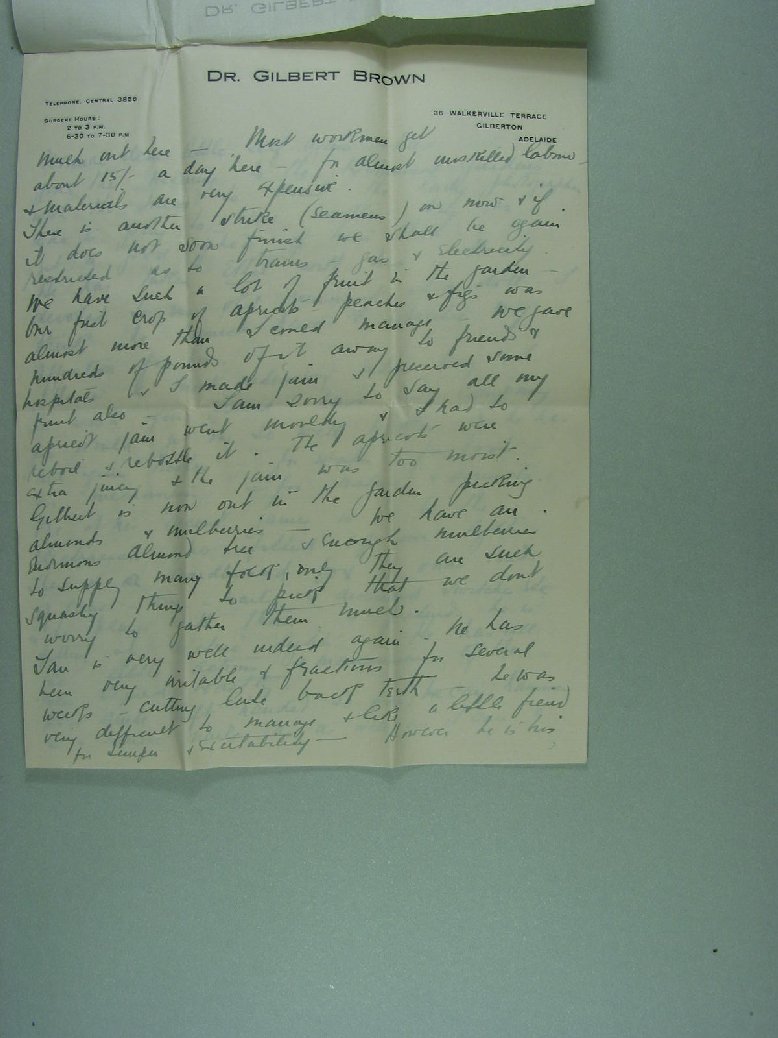 DR. GILBERT BROWN
TELEPHONE, CENTRAL 3889
SURGERY HOURS:
2 TO 3 P.M.
6-30 TO 7-30 P.M
36 WALKERVILLE TERRACE
GILBERTON
ADELAIDE
Most workmen get
much out here — for almost unskilled labour —
about 15/- a day here
& materials are very expensive.
There is another strike (Seamens) on now & if
it does not soon finish we shall be again
restricted as to trams gas & Electricity.
We have such a lot of fruit in the garden —
Our first crop of apricots peaches & figs was
almost more than I could manage — we gave
hundreds of pounds of it away to friends &
hospitals & I made jam & preserved some
fruit also — I am sorry to say all my
apricot jam went mouldy & I had to
reboil & rebottle it. The apricots were
extra juicy & the jam was too moist.
Gilbert is now out in the garden picking
almonds & mulberries — We have an
enormous almond tree & enough mulberries
to supply many folk, only they are such
squashy things to pick that we dont
worry to gather them much.
Ian is very well indeed again. He has
been very irritable & fractious for several
weeks — cutting late back teeth — he was
very difficult to manage & like a little fiend
for temper & excitability — However he is his